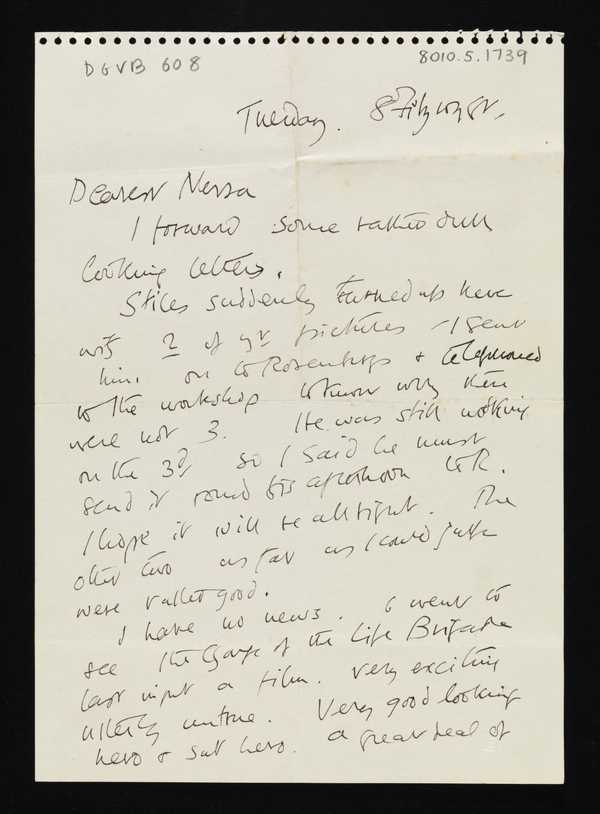 DGVB 608
8010.5.1739
Tuesday. 8 Fitzroy St.
Dearest Nessa
I forward some rather dull
looking letters.
Stiles suddenly turned up here
with 2 of yr pictures – I sent
him on to Rosenbergs & telephoned
to the workshop to know why there
were not 3. He was still working
on the 3d so I said he must
send it round this afternoon to R.
I hope it will be all right. The
other two as far as I could judge
were rather good.
I have no news. I went to
see the Charge of the Life Brigade
last night a film. very exciting
utterly untrue. Very good looking
hero & sub hero. a great deal of